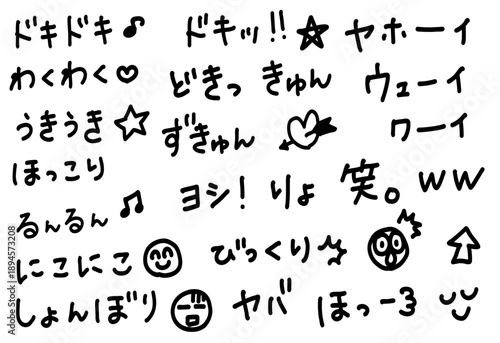 ドキドキ♪ ドキッ!!☆ ヤホーイ
わくわく♡ どきっ きゅん ウェーイ
うきうき☆ ずきゅん ワーイ
ほっこり
るんるん♫ ヨシ! りょ 笑。ww
にこにこ びっくり
しょんぼり ヤバ ほっー3
Adobe Stock | #1894573208